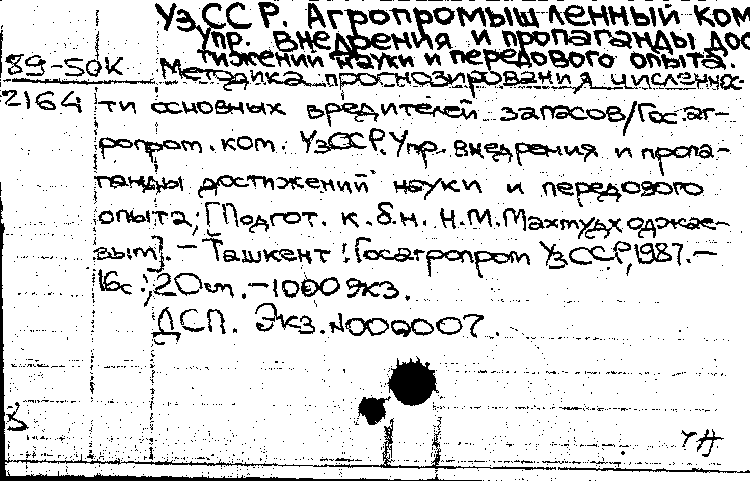 УзССР. Агропромышленный ком
Упр. внедрения и пропаганды дос
тижений науки и передового опыта.
89-50К Методика прогнозирования численнос-
2164 ти основных вредителей запасов/Гос.аг-
ропром.ком. УзССР.Упр.внедрения и пропа-
ганды достижений науки и передового
опыта; [Подгот. к.б.н. Н.М.Махмудходжае-
вым]. - Ташкент: Госагропром УзССР,1987.-
16с.; 20см. - 1000экз.
ДСП. Экз.N000007.